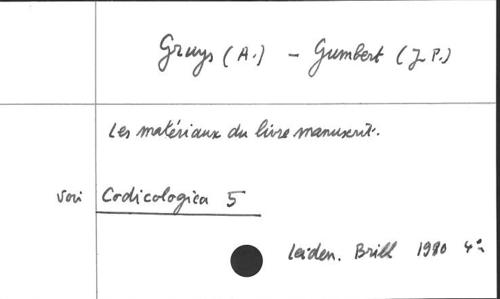 Gruys (A.) - Gumbert (J. P.)
Les matériaux du livre manuscrit.
voir Codicologica 5
Leiden. Brill 1980 4°